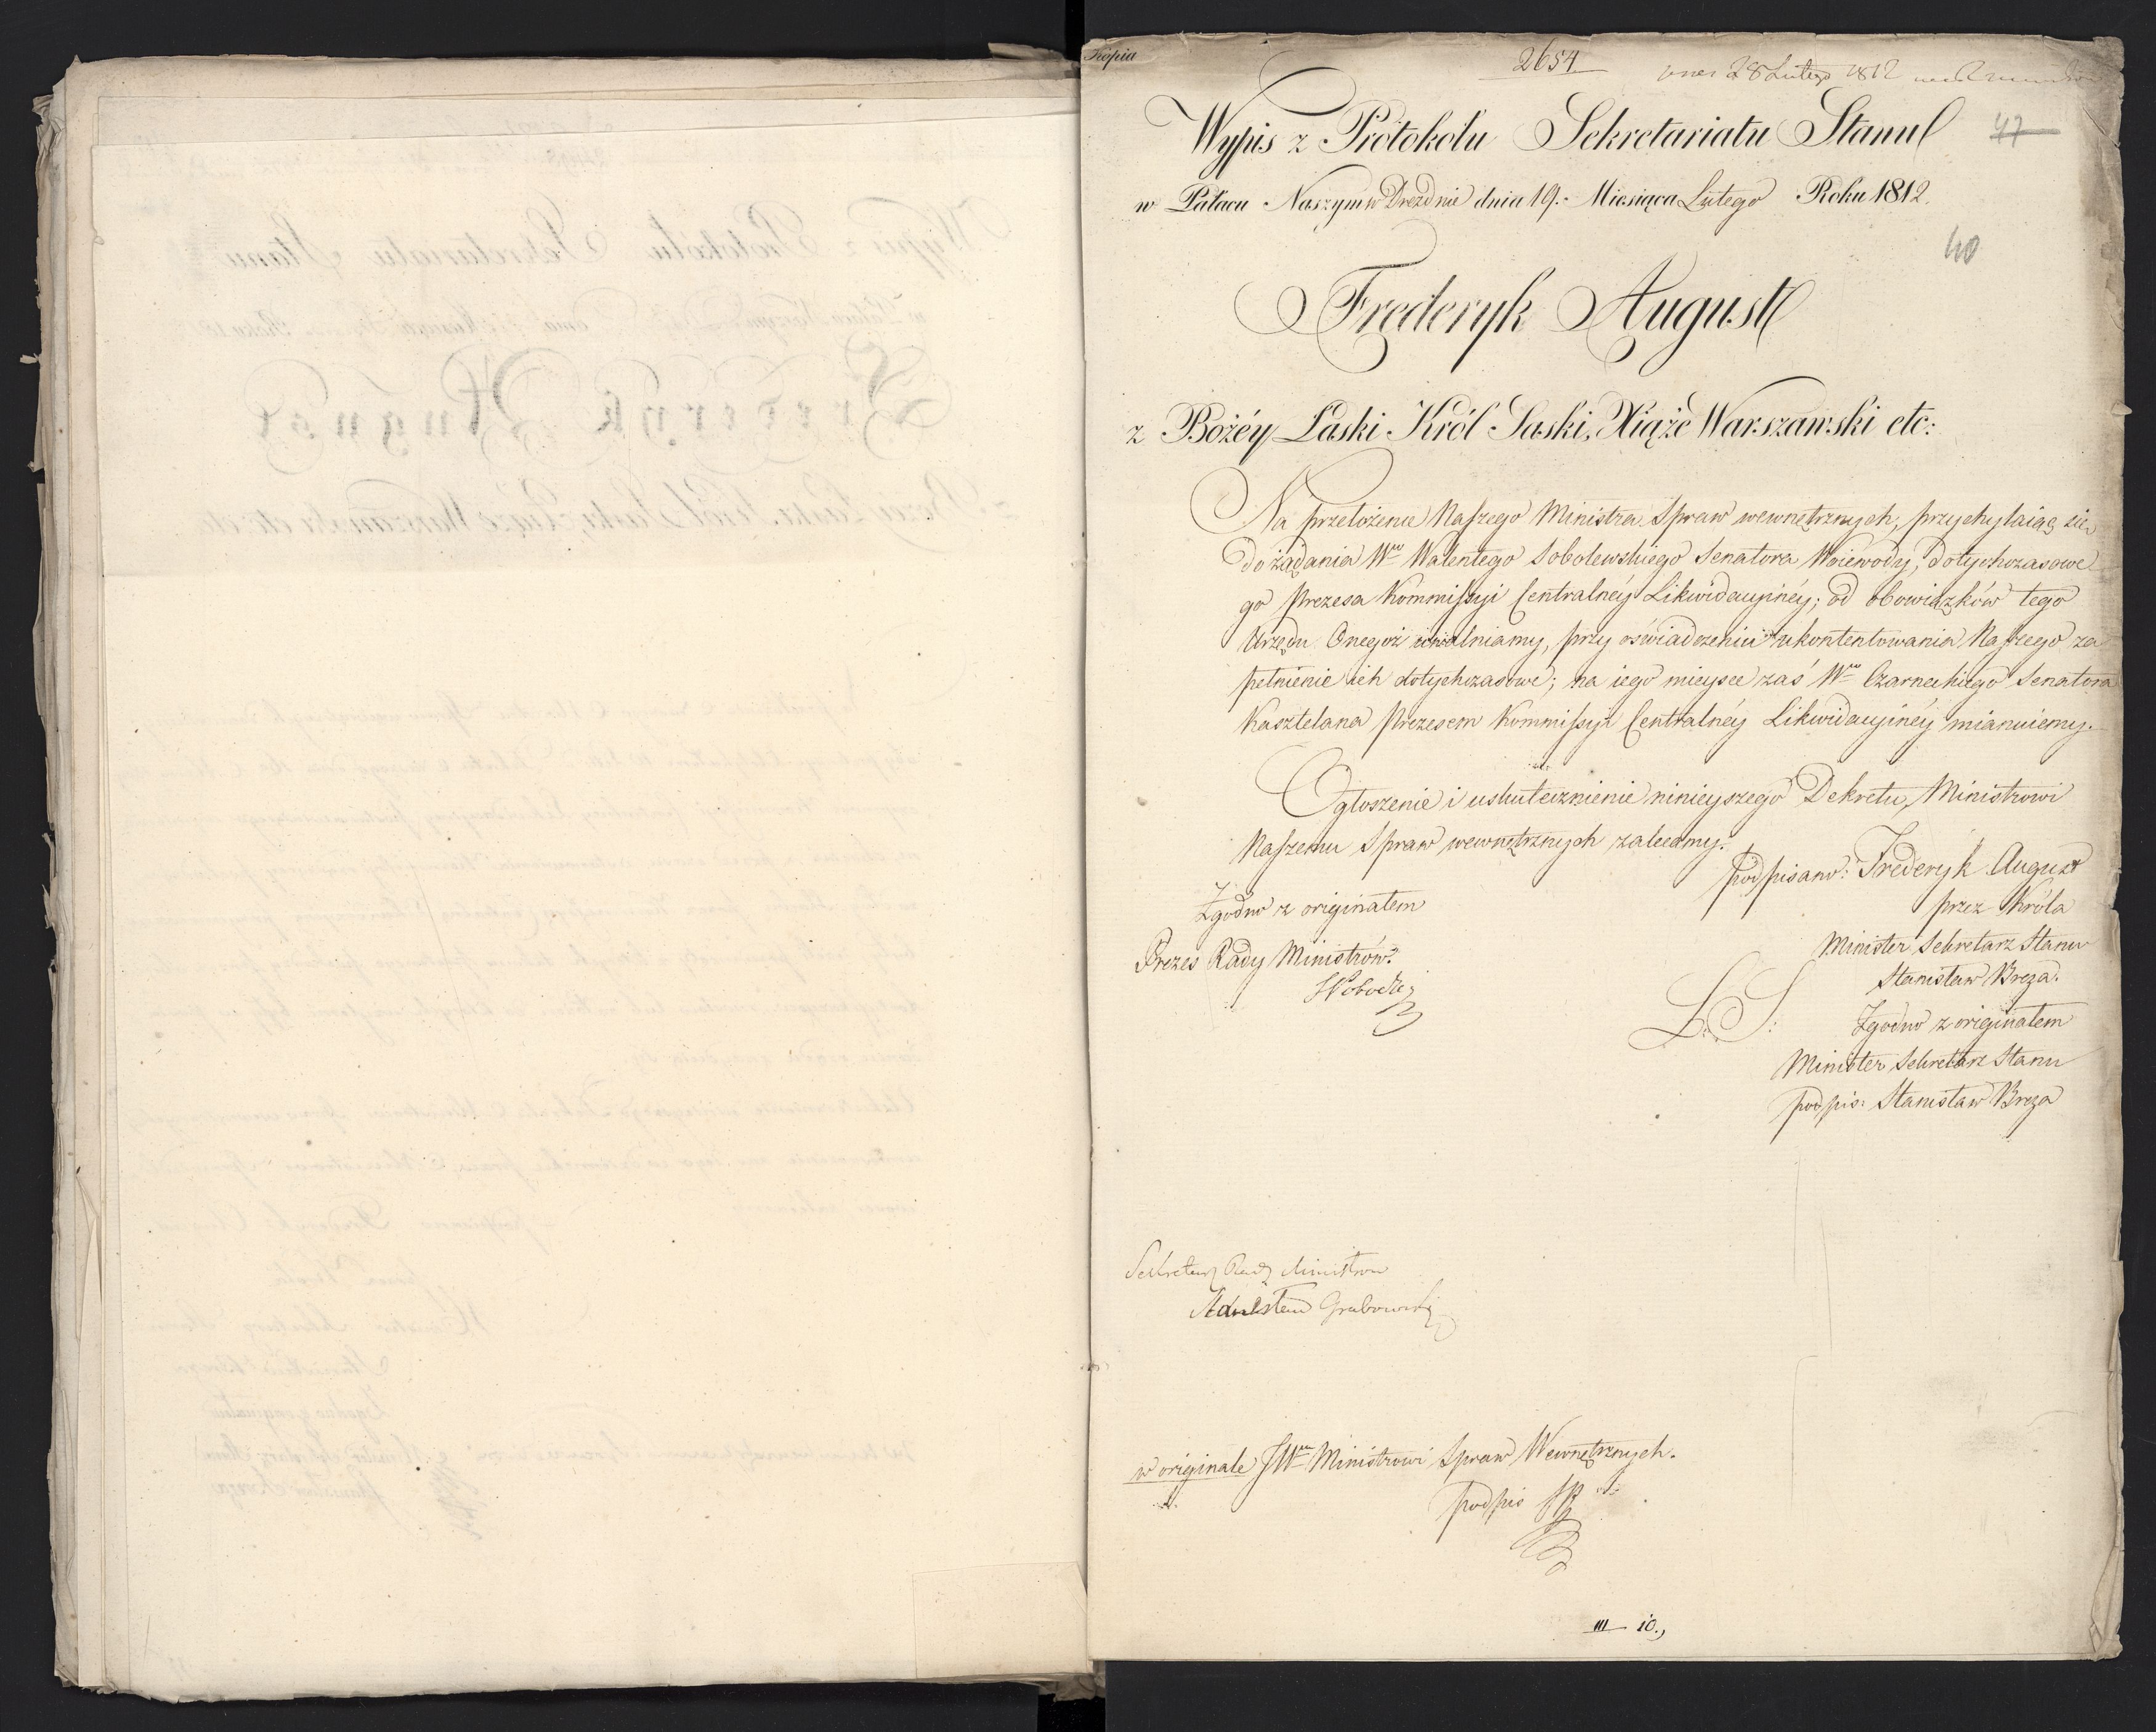 Kópia
2654
28 Lutego 1812
Wypis z Protokółu Sekretariatu Stanu
47
w Pałacu Naszym w Dreznie dnia 19. Miesiąca Lutego Roku 1812.
40
Frederyk August
z Bożéy Łaski Król Saski, Xiążę Warszawski etc:
Na przełożenie Naszego Ministra Spraw wewnętrznych, przychylaiąc się
do żądania Wgo Walentego Sobolewskiego Senatora Woiewody, dotychczasowe
go Prezesa Kommissyi Centralnéy Likwidacyinéy; od obowiązków tego
Urzędu Onegoż uwalniamy, przy oświadczeniu ukontentowania Naszego za
pełnienie ich dotychczasowe; na iego mieysce zaś Wgo Czarneckiego Senatora
Kasztelana Prezesem Kommissyi Centralnéy Likwidacyinéy mianuiemy.
Ogłoszenie i uskutecznienie ninieyszego Dekretu, Ministrowi
Naszemu Spraw wewnętrznych zalecamy.
podpisano: Frederyk August
przez Króla
Minister Sekretarz Stanu
Stanisław Breza.
L. S.
Zgodno z originałem
Minister Sekretarz Stanu
podpis: Stanisław Breza
Zgodno z originałem
Prezes Rady Ministrów.
Sekretarz Rady Ministrów
Grabowski
w originale JWmu Ministrowi Spraw Wewnętrznych.
podpis
III 10.,